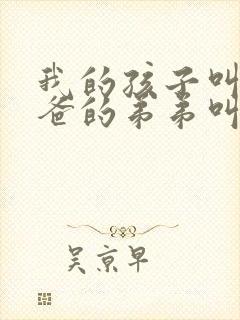 我的孩子叫
爸的弟弟叫
吴京早